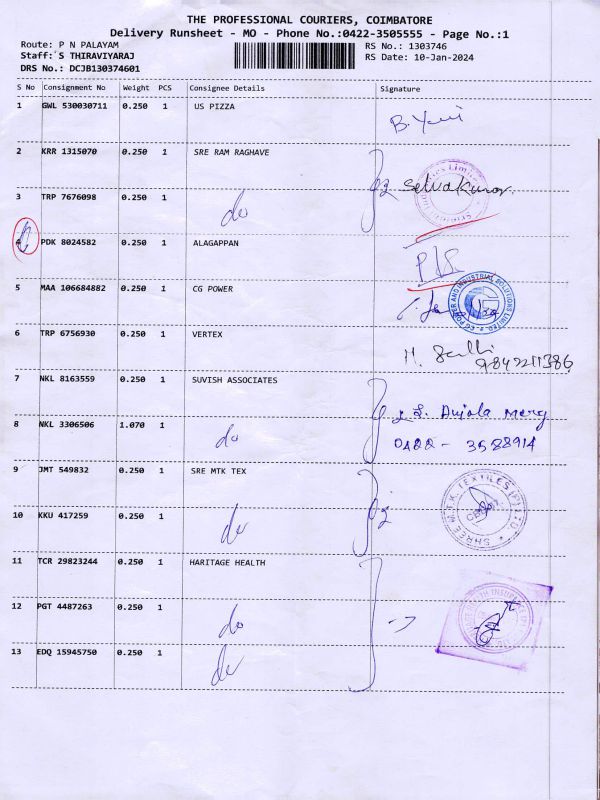 THE PROFESSIONAL COURIERS, COIMBATORE
Delivery Runsheet - MO - Phone No.:0422-3505555 - Page No.:1
Route: P N PALAYAM
RS No.: 1303746
Staff: S THIRAVIYARAJ
RS Date: 10-Jan-2024
DRS No.: DCJB130374601
S No Consignment No Weight PCS Consignee Details Signature
1 GWL 530030711 0.250 1 US PIZZA
2 KRR 1315070 0.250 1 SRE RAM RAGHAVE
Selvakumar
3 TRP 7676098 0.250 1 do
4 PDK 8024582 0.250 1 ALAGAPPAN
5 MAA 106684882 0.250 1 CG POWER
CG POWER AND INDUSTRIAL SOLUTIONS LIMITED
6 TRP 6756930 0.250 1 VERTEX
9842211386
7 NKL 8163559 0.250 1 SUVISH ASSOCIATES
8 NKL 3306506 1.070 1 do
0422 - 3588914
9 JMT 549832 0.250 1 SRE MTK TEX
SHREE M.T.K. TEXTILES (P) LTD.
10 KKU 417259 0.250 1 do
11 TCR 29823244 0.250 1 HARITAGE HEALTH
12 PGT 4487263 0.250 1 do
13 EDQ 15945750 0.250 1 do